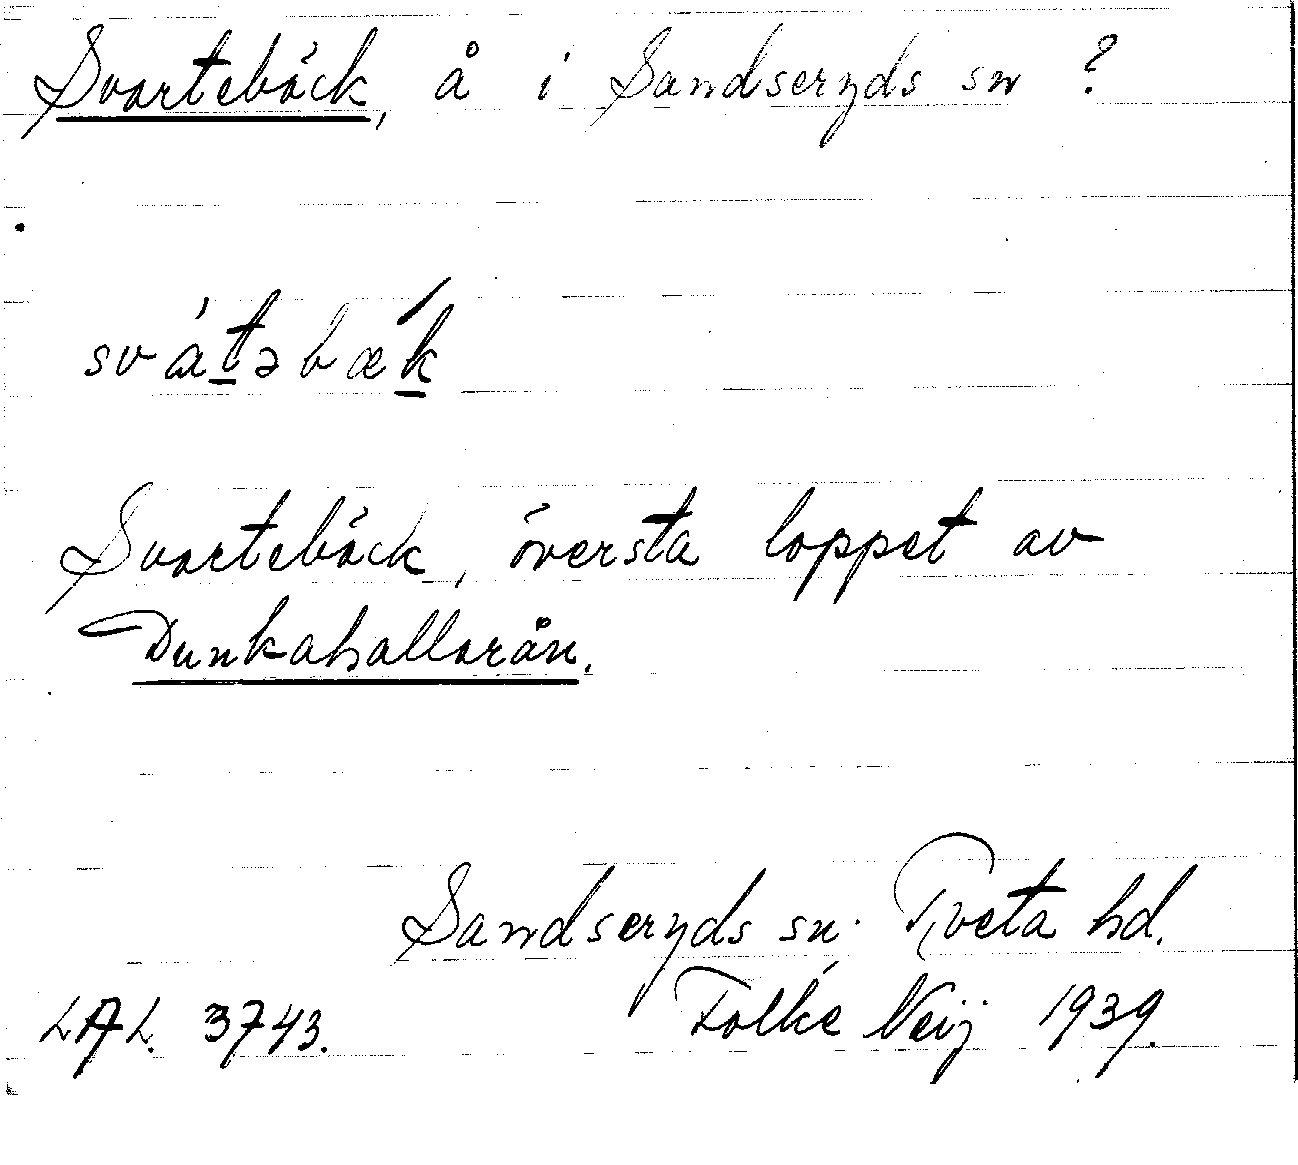 Svartebäck, å i Sandseryds sn ?
svátəbæ̀k
Svartebäck, översta loppet av
Dunkahallarån.
Sandseryds sn. Tveta hd.
LAL. 3743. Folke Neij 1939.